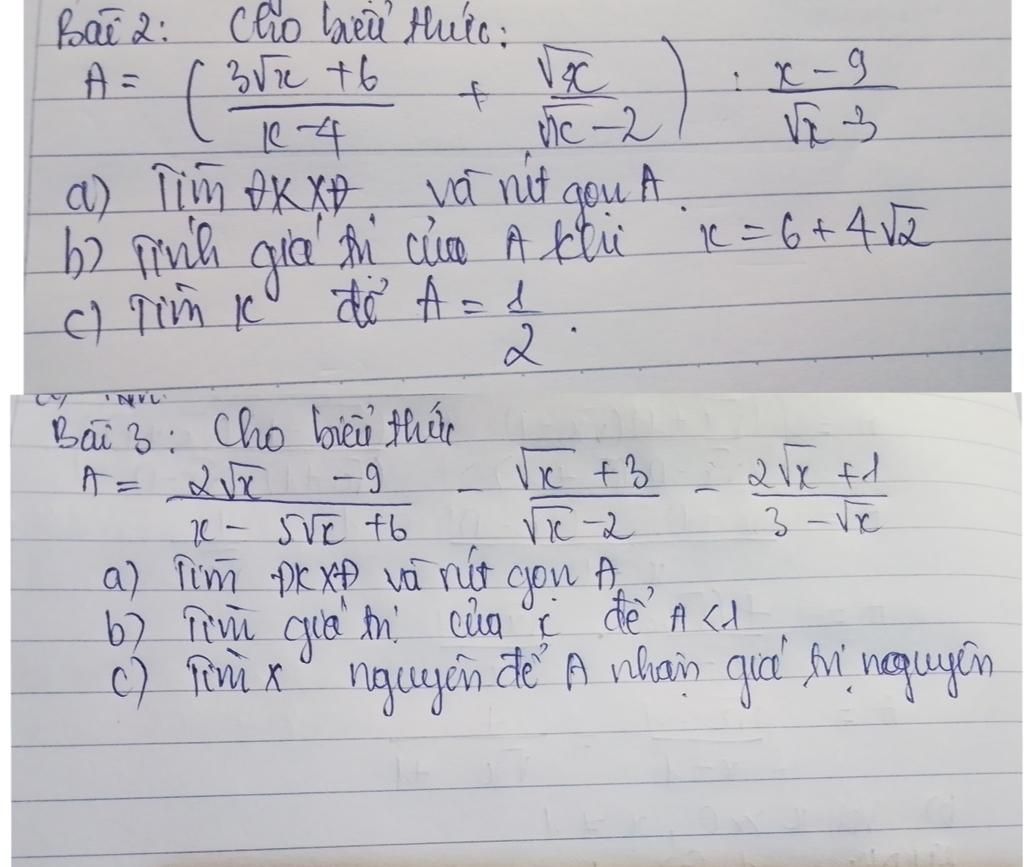 Bài 2: Cho biểu thức:
A = ( (3√x + 6)/(x - 4) + √x/(√x - 2) ) : (x - 9)/(√x - 3)
a) Tìm ĐKXĐ và rút gọn A.
b) Tính giá trị của A khi x = 6 + 4√2
c) Tìm x để A = 1/2.
Bài 3: Cho biểu thức
A = (2√x - 9)/(x - 5√x + 6) - (√x + 3)/(√x - 2) - (2√x + 1)/(3 - √x)
a) Tìm ĐKXĐ và rút gọn A
b) Tìm giá trị của x để A < 1
c) Tìm x nguyên để A nhận giá trị nguyên